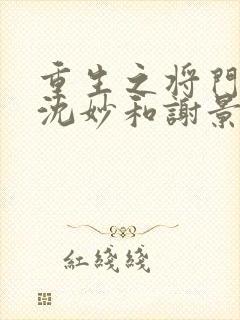 重生之将門
沈妙和謝景
紅綫綫